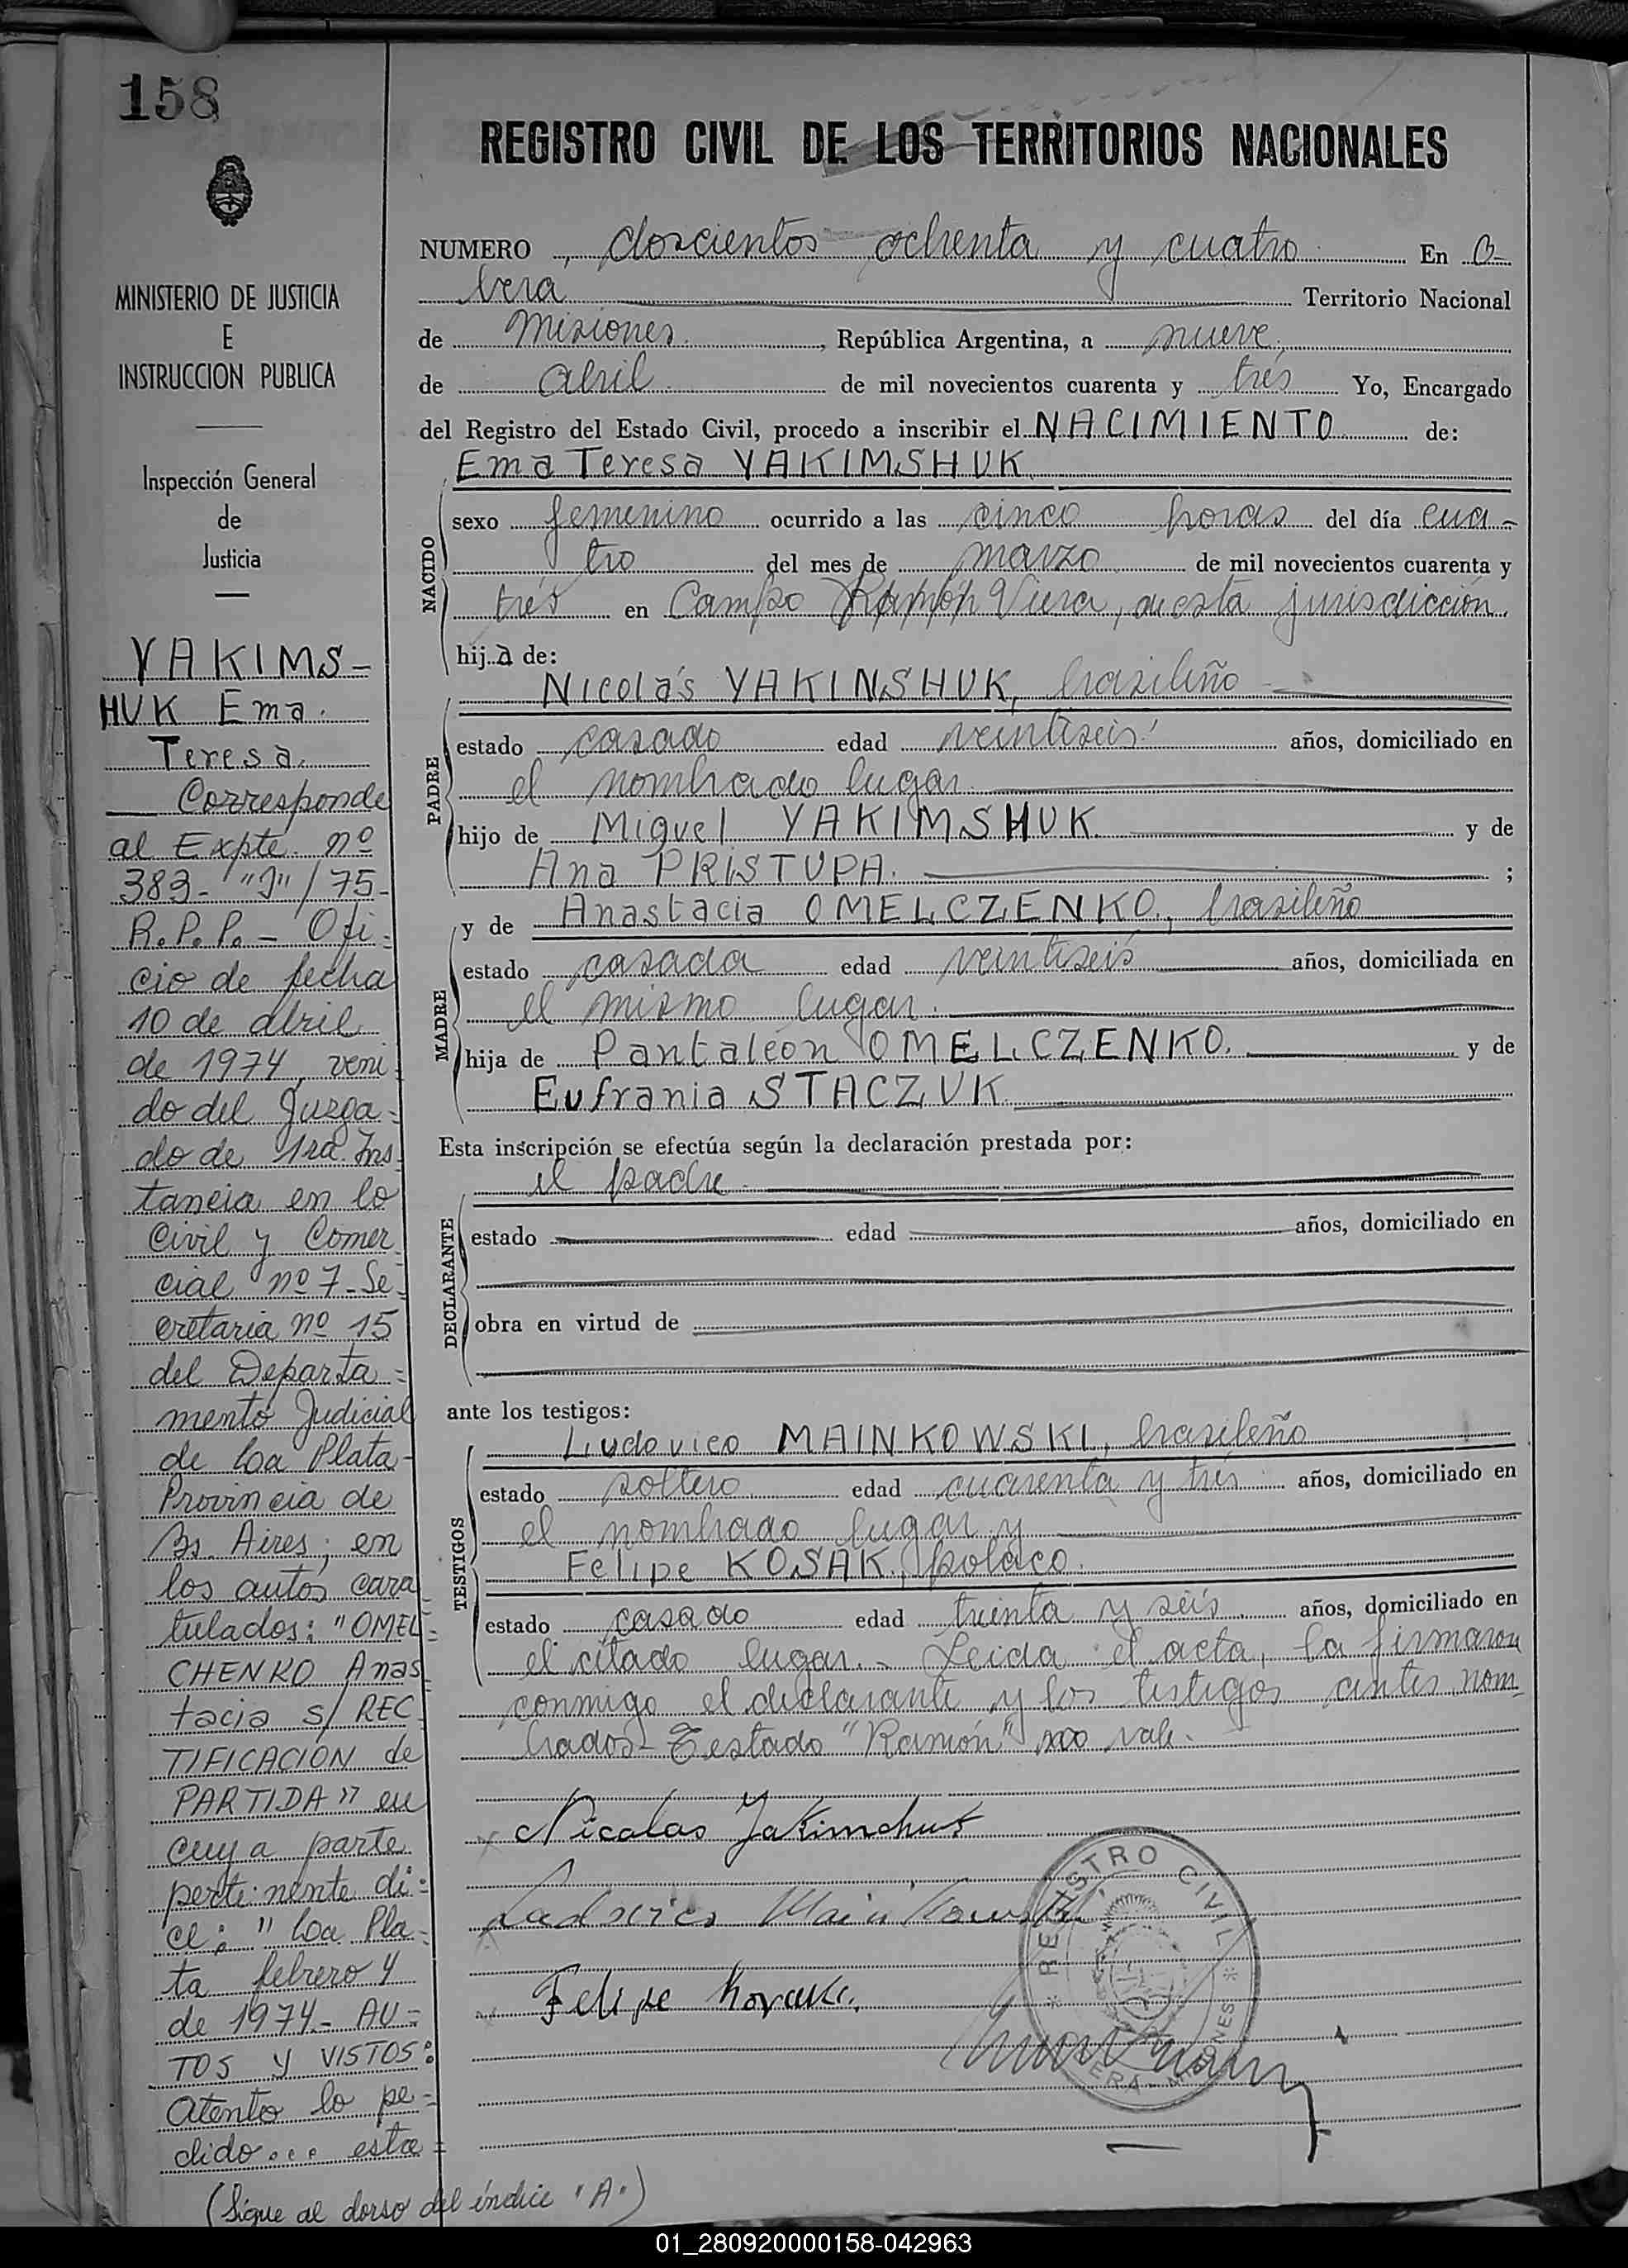 158
MINISTERIO DE JUSTICIA
E
INSTRUCCION PUBLICA
Inspección General
de
Justicia
YAKIMS-
HUK Ema
Teresa.
Corresponde
al Expte. nº
383- "J" / 75-
R.P.P. - Ofi-
cio de fecha
10 de abril
de 1974, veni-
do del Juzga-
do de 1ra. Ins-
tancia en lo
Civil y Comer-
cial nº 7 - Se-
cretaria nº 15
del Departa-
mento Judicial
de La Plata-
Provincia de
Bs. Aires; en
los autos cara-
tulados: "OMEL-
CHENKO Anas-
tacia s/ REC-
TIFICACION de
PARTIDA" en
cuya parte
pertinente di-
ce: "La Pla-
ta febrero 4
de 1974.- AU-
TOS Y VISTOS:
Atento lo pe-
dido... esta-
(Sigue al dorso del índice "A")
REGISTRO CIVIL DE LOS TERRITORIOS NACIONALES
NUMERO, doscientos ochenta y cuatro En O-
bera Territorio Nacional
de Misiones, República Argentina, a nueve
de abril de mil novecientos cuarenta y tres Yo, Encargado
del Registro del Estado Civil, procedo a inscribir el NACIMIENTO de:
Ema Teresa YAKIMSHUK
NACIDO
sexo femenino ocurrido a las cinco horas del día cua-
tro del mes de marzo de mil novecientos cuarenta y
tres en Campo Ramón Viera, de esta jurisdicción.
hija de:
PADRE
Nicolás YAKINSHUK, brasileño
estado casado edad veintiseis años, domiciliado en
el nombrado lugar.
hijo de Miguel YAKIMSHUK y de
Ana PRISTUPA. ;
MADRE
y de Anastacia OMELCZENKO, brasileño
estado casada edad veintiseis años, domiciliada en
el mismo lugar.
hija de Pantaleón OMELCZENKO. y de
Eufrania STACZUK
Esta inscripción se efectúa según la declaración prestada por:
DECLARANTE
el padre
estado edad años, domiciliado en
obra en virtud de
ante los testigos:
TESTIGOS
Ludovico MAINKOWSKI, brasileño
estado soltero edad cuarenta y tres años, domiciliado en
el nombrado lugar y
Felipe KOSAK, polaco.
estado casado edad treinta y seis años, domiciliado en
el citado lugar.- Leida el acta, la firmaron
conmigo el declarante y los testigos antes nom-
brados- Testado "Ramón" no vale.
Nicolas Jakimchuk
Mainkowski
Felipe
REGISTRO CIVIL
OBERA - MISIONES
01_280920000158-042963